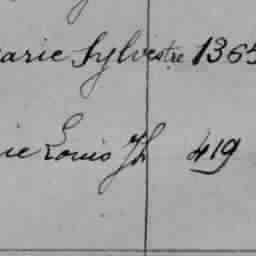 arie Sylvestre 1365
ie Louis Jh 419